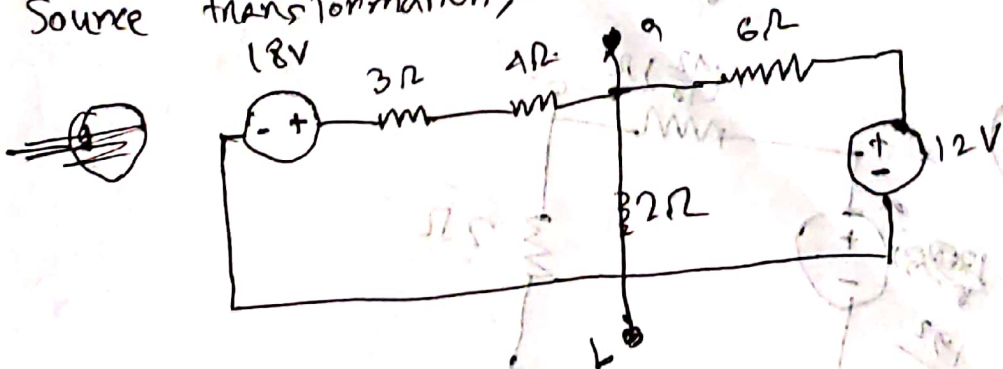 Source transformation,
18V 3Ω 4Ω a 6Ω
- +
+ 12V
-
2Ω
b